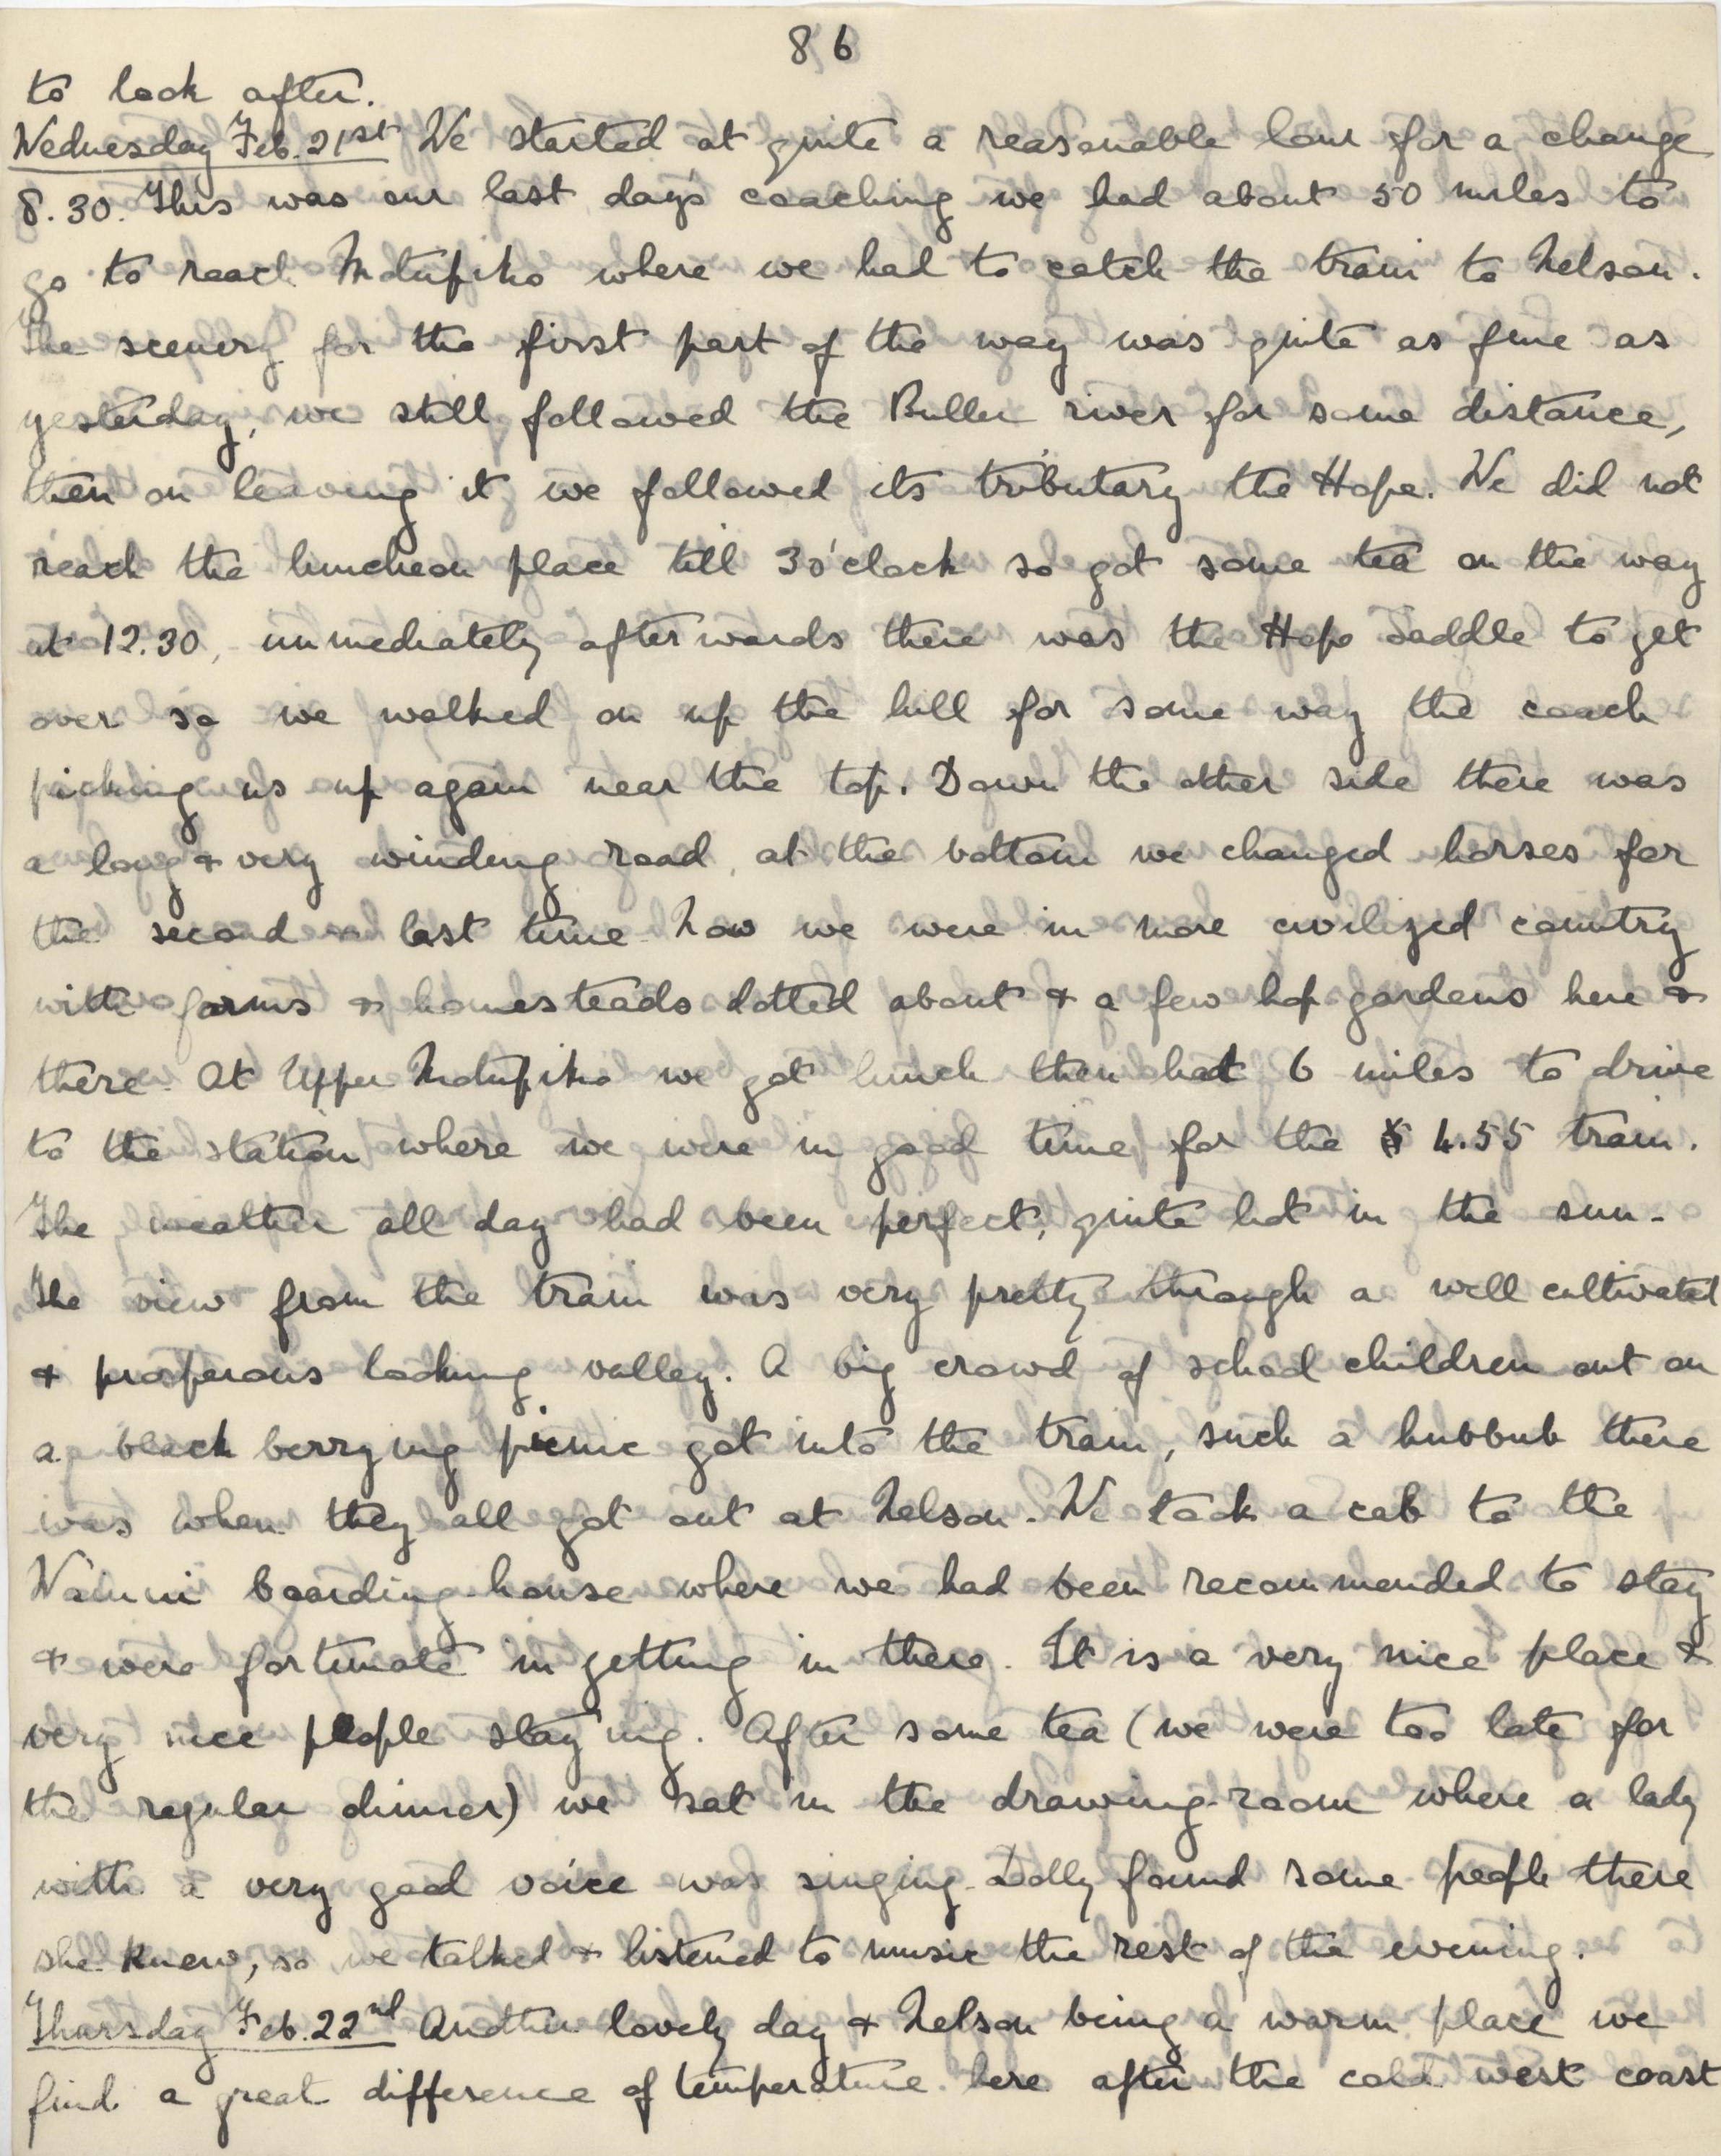 86
to look after.
Wednesday Feb. 21st We started at quite a reasonable hour for a change
8.30. This was our last day's coaching we had about 50 miles to
go to reach Motupiko where we had to catch the train to Nelson.
The scenery for the first part of the way was quite as fine as
yesterday, we still followed the Buller river for some distance,
then on leaving it we followed its tributary the Hope. We did not
reach the luncheon place till 3 o'clock so got some tea on the way
at 12.30, immediately afterwards there was the Hope Saddle to get
over so we walked on up the hill for some way the coach
picking us up again near the top. Down the other side there was
a long & very winding road, at the bottom we changed horses for
the second & last time. Now we were in more civilized country
with farms & homesteads dotted about & a few hop gardens here &
there. At Upper Motupiko we got lunch then had 6 miles to drive
to the station where we were in good time for the 4.55 train.
The weather all day had been perfect, quite hot in the sun.
The view from the train was very pretty through a well cultivated
& prosperous looking valley. A big crowd of school children out on
a black berrying picnic got into the train, such a hubbub there
was when they all got out at Nelson. We took a cab to the
boarding-house where we had been recommended to stay
& were fortunate in getting in there. It is a very nice place &
very nice people staying. After some tea (we were too late for
the regular dinner) we sat in the drawing-room where a lady
with a very good voice was singing. Dolly found some people there
she knew, so we talked & listened to music the rest of the evening.
Thursday Feb. 22nd Another lovely day & Nelson being a warm place we
find a great difference of temperature here after the cold west coast